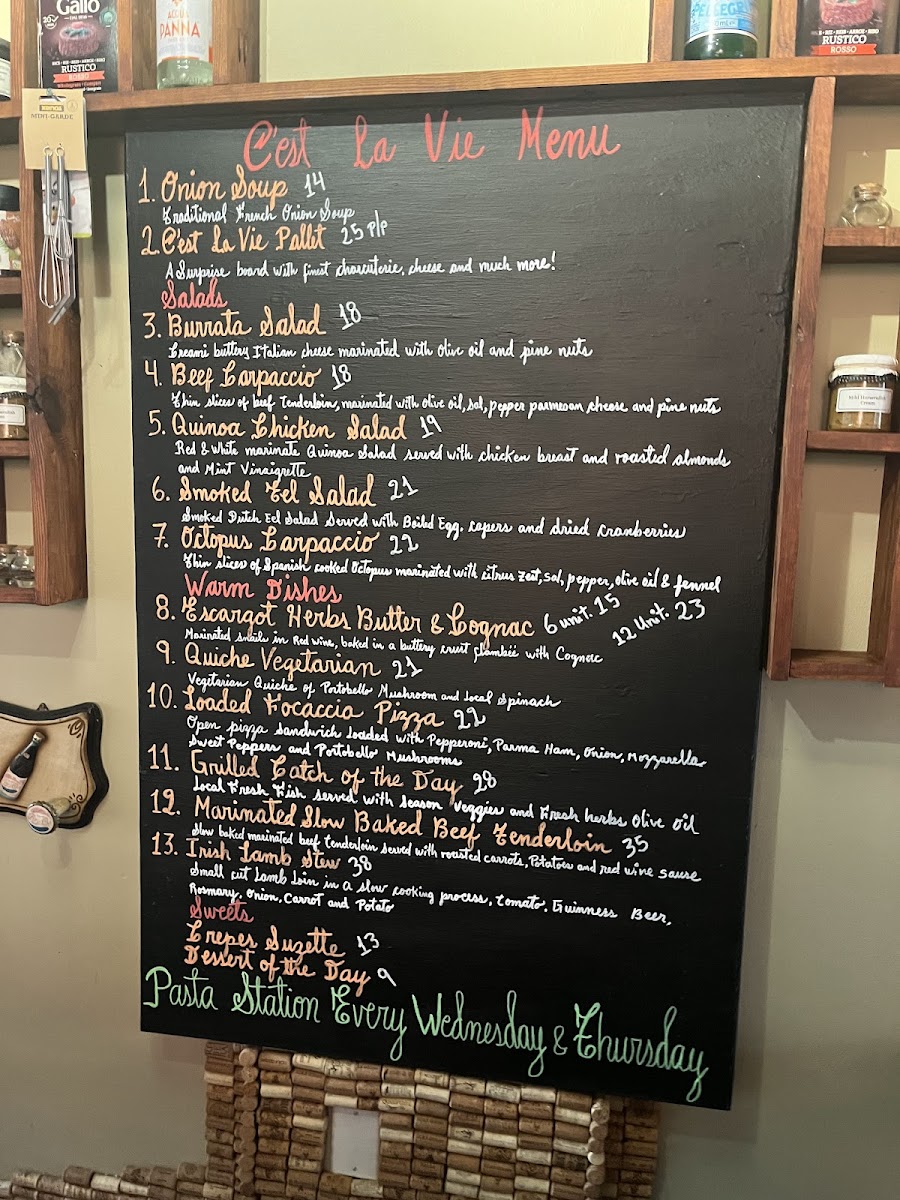 Gallo
RUSTICO
ROSSO
ACQUA
PANNA
RUSTICO
ROSSO
MINI-GARDE
C'est La Vie Menu
1. Onion Soup 14
Traditional French Onion Soup
2. C'est La Vie Pallet 25 P/P
A Surprise board with finest charcuterie, cheese and much more!
Salads
3. Burrata Salad 18
Creami buttery Italian cheese marinated with olive oil and pine nuts
4. Beef Carpaccio 18
Thin slices of beef tenderloin, marinated with olive oil, sal, pepper parmesan cheese and pine nuts
5. Quinoa Chicken Salad 19
Red & White marinate Quinoa Salad served with chicken breast and roasted almonds
and Mint Vinaigrette
6. Smoked Eel Salad 21
Smoked Dutch Eel Salad Served with Boiled Egg, capers and dried cranberries
7. Octopus Carpaccio 22
Thin slices of Spanish cooked Octopus marinated with citrus zest, sal, pepper, olive oil & fennel
Warm Dishes
8. Escargot Herbs Butter & Cognac 6 unit. 15 12 Unit. 23
Marinated snails in Red wine, baked in a buttery crust flambéé with Cognac
9. Quiche Vegetarian 21
Vegetarian Quiche of Portobello Mushroom and local Spinach
10. Loaded Focaccia Pizza 22
Open pizza Sandwich loaded with Pepperoni, Parma Ham, Onion, Mozzarella
Sweet Peppers and Portobello Mushrooms
11. Grilled Catch of the Day 28
Local Fresh Fish served with Season Veggies and Fresh herbs Olive Oil
12. Marinated Slow Baked Beef Tenderloin 35
Slow baked marinated beef tenderloin served with roasted carrots, Potatoes and red wine sause
13. Irish Lamb Stew 38
Small cut Lamb Loin in a slow cooking process, tomato, Guinness Beer,
Rosmary, Onion, Carrot and Potato
Sweets
Crepes Suzette 13
Dessert of the Day 9
Pasta Station Every Wednesday & Thursday